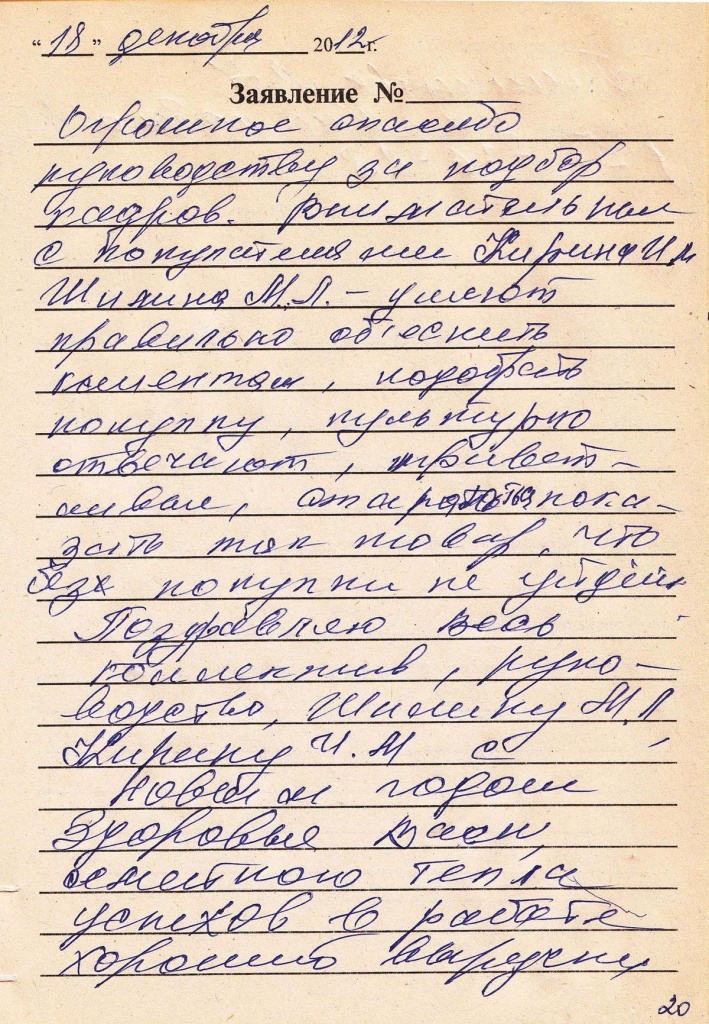 "18" декабря 2012 г.
Заявление №
Огромное спасибо
руководству за подбор
кадров. Внимательны
с покупателями Кирина И.М
Шилина М.Л. - умеют
правильно объеснить
клиентам, подобрать
покупку, культурно
отвечают, привет-
ливы, стараются пока-
зать так товар, что
без покупки не уйдёшь
Поздравляю весь
коллектив, руко-
водство, Шилину М.Л,
Кирину И.М с
Новым годом
Здоровья Васм,
семейного тепла
успехов в работе
хорошей выручки
20